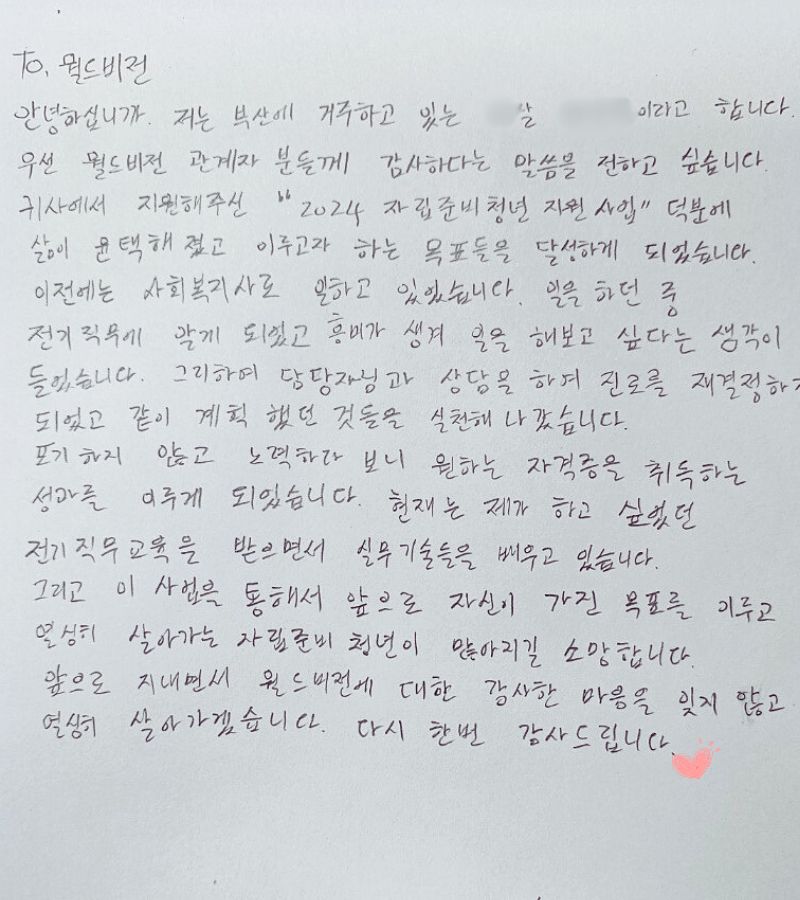 To, 월드비전
안녕하십니까. 저는 부산에 거주하고 있는 살 이라고 합니다.
우선 월드비전 관계자 분들께 감사하다는 말씀을 전하고 싶습니다.
귀사에서 지원해주신 "2024 자립준비청년 지원 사업" 덕분에
삶이 윤택해졌고 이루고자 하는 목표들을 달성하게 되었습니다.
이전에는 사회복지사로 일하고 있었습니다. 일을 하던 중
전기직무에 알게 되었고 흥미가 생겨 일을 해보고 싶다는 생각이
들었습니다. 그리하여 담당자님과 상담을 하여 진로를 재결정하게
되었고 같이 계획 했던 것들을 실천해 나갔습니다.
포기하지 않고 노력하다 보니 원하는 자격증을 취득하는
성과를 이루게 되었습니다. 현재는 제가 하고 싶었던
전기직무교육을 받으면서 실무기술들을 배우고 있습니다.
그리고 이 사업을 통해서 앞으로 자신이 가진 목표를 이루고
열심히 살아가는 자립준비청년이 많아지길 소망합니다.
앞으로 지내면서 월드비전에 대한 감사한 마음을 잊지 않고
열심히 살아가겠습니다. 다시 한번 감사드립니다.